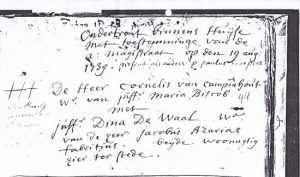 Ondertrout binnens Huijse
met toestemminge van de
magistraat op den 19 aug
1739.
De Heer Cornelis van Campenhout
wr. van juffr. Maria Biscob
met
juffr. Dina De Waal we.
van de Heer Jacobus Azarias
fabritius. beyde woonagtig
hier ter stede.